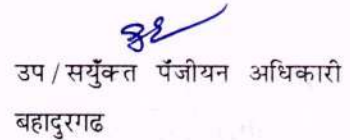 उप / सयुँक्त पँजीयन अधिकारी
बहादुरगढ